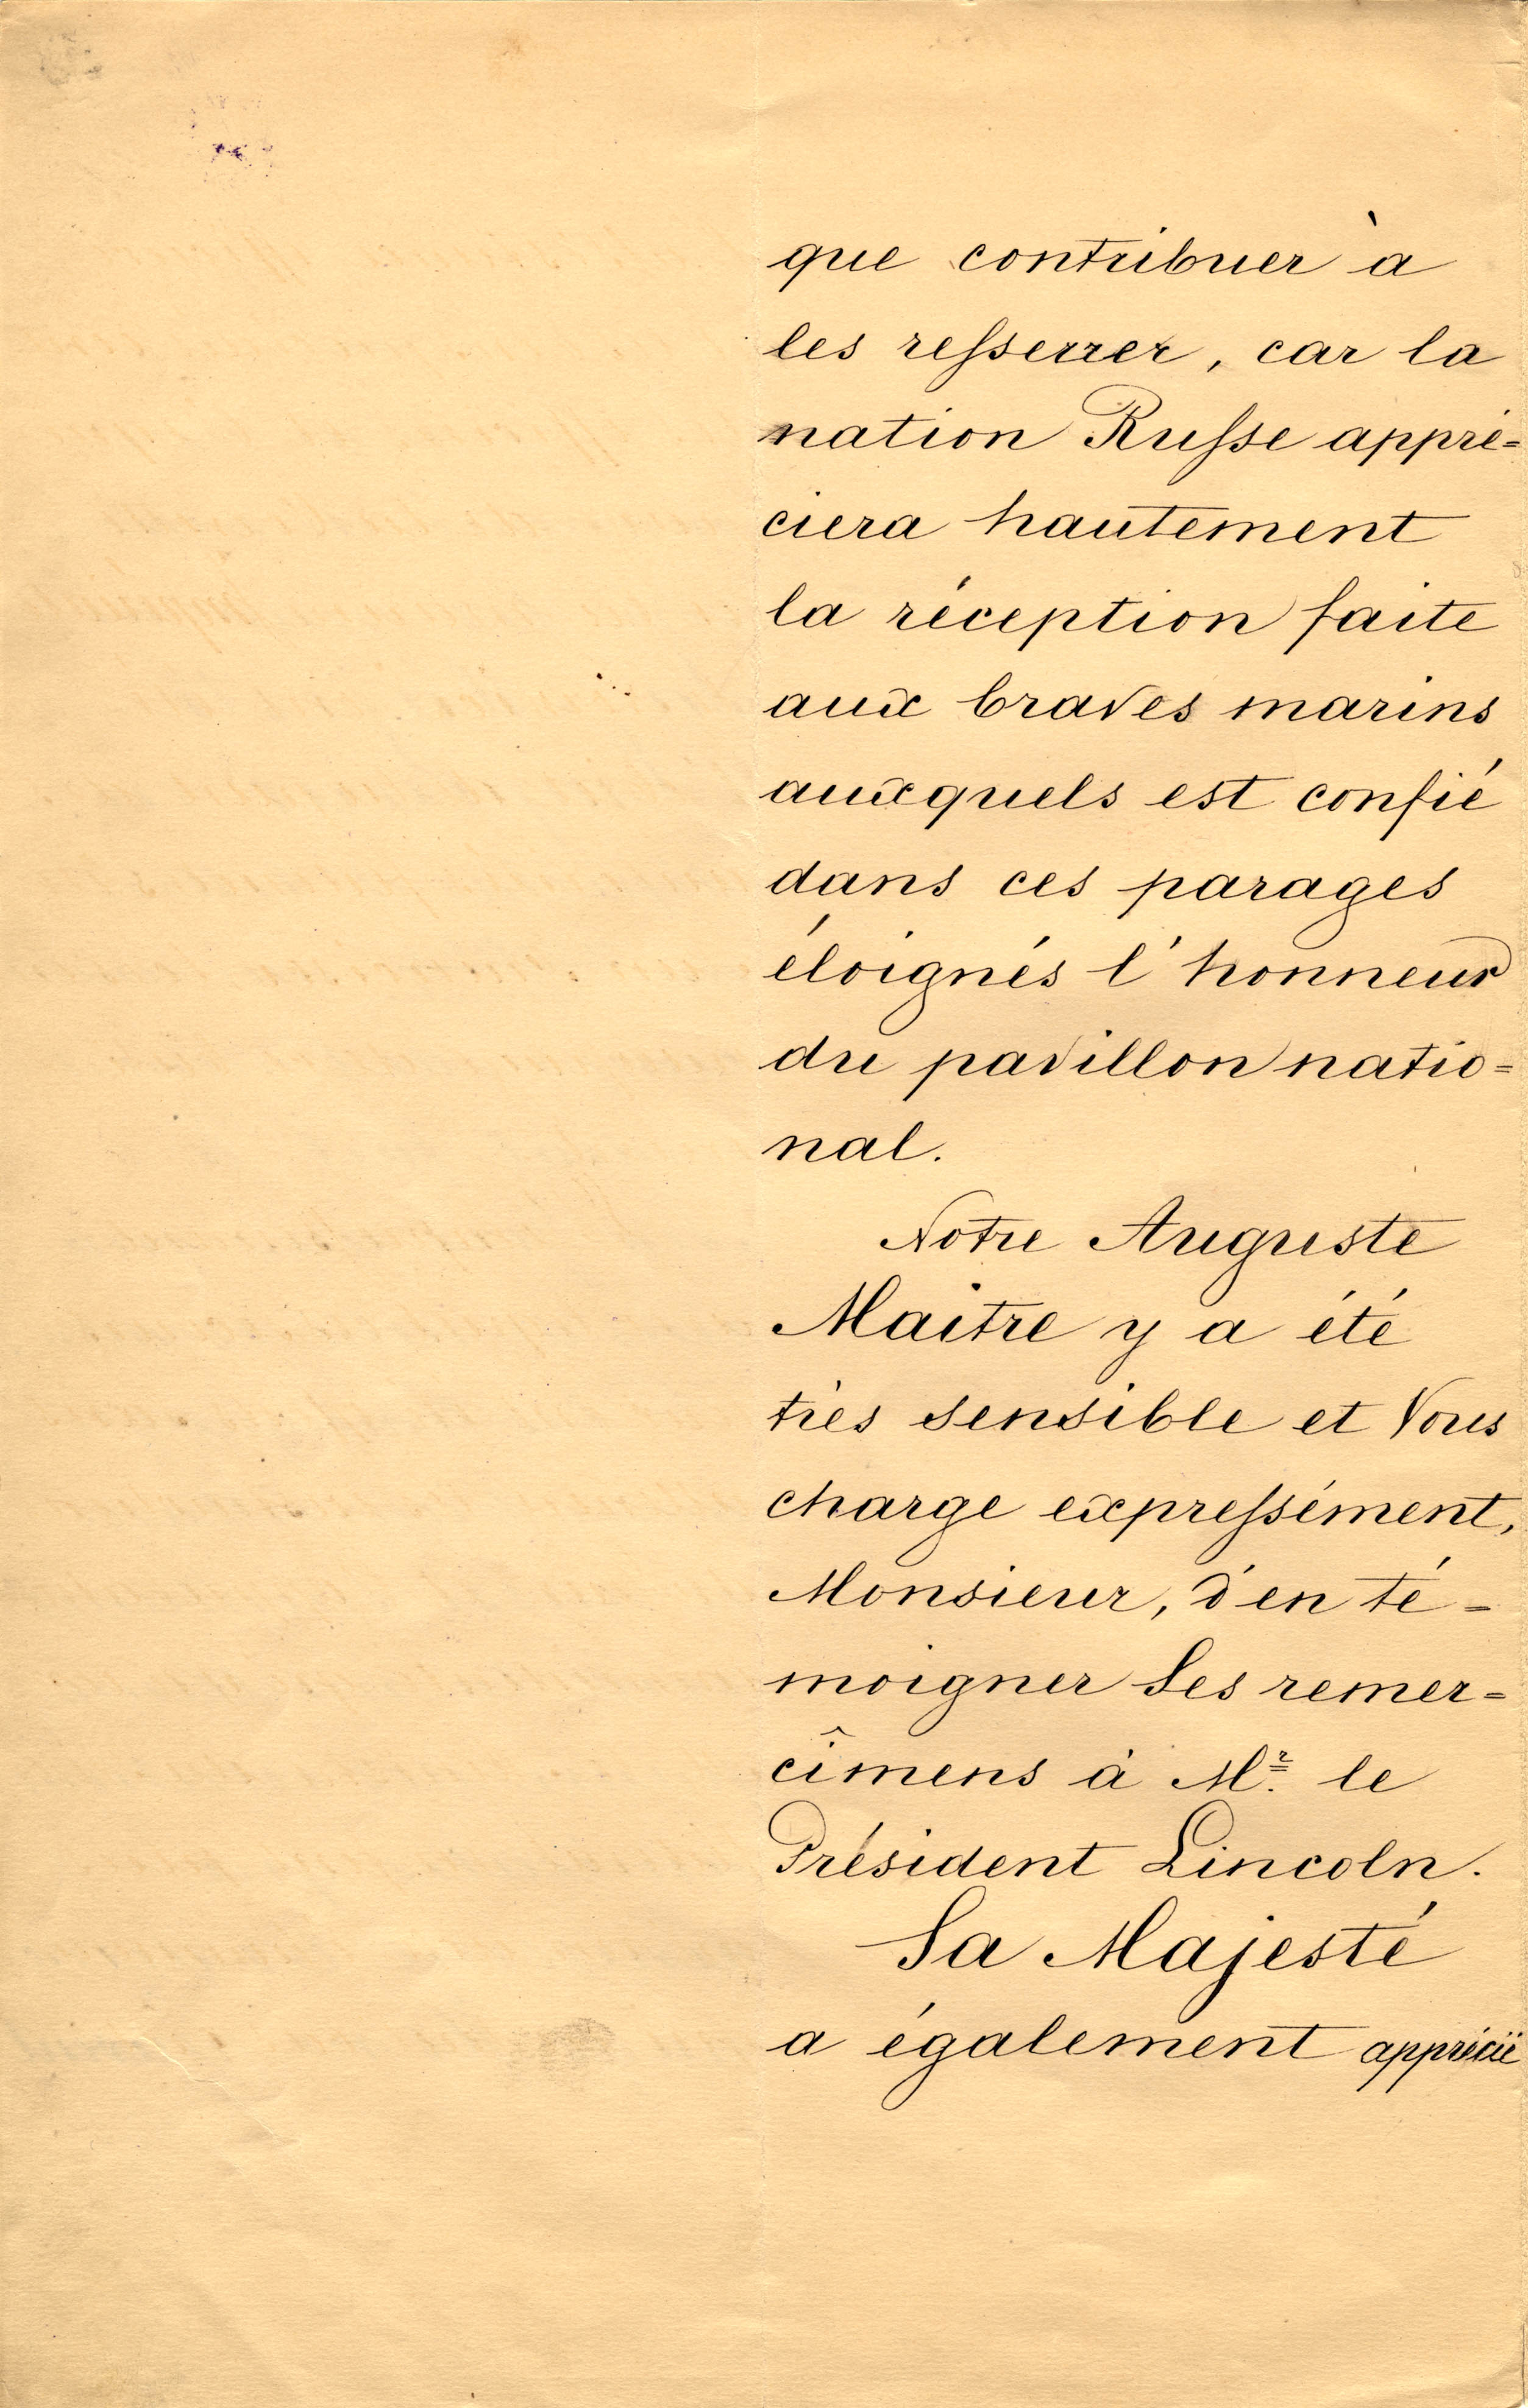 que contribuer à
les resserrer, car la
nation Russe appré=
ciera hautement
la réception faite
aux braves marins
auxquels est confié
dans ces parages
éloignés l'honneur
du pavillon natio=
nal.
Notre Auguste
Maitre y a été
très sensible et Vous
charge expressément,
Monsieur, d'en té=
moigner Ses remer=
cîmens à Mr. le
Président Lincoln.
Sa Majesté
a également apprécié